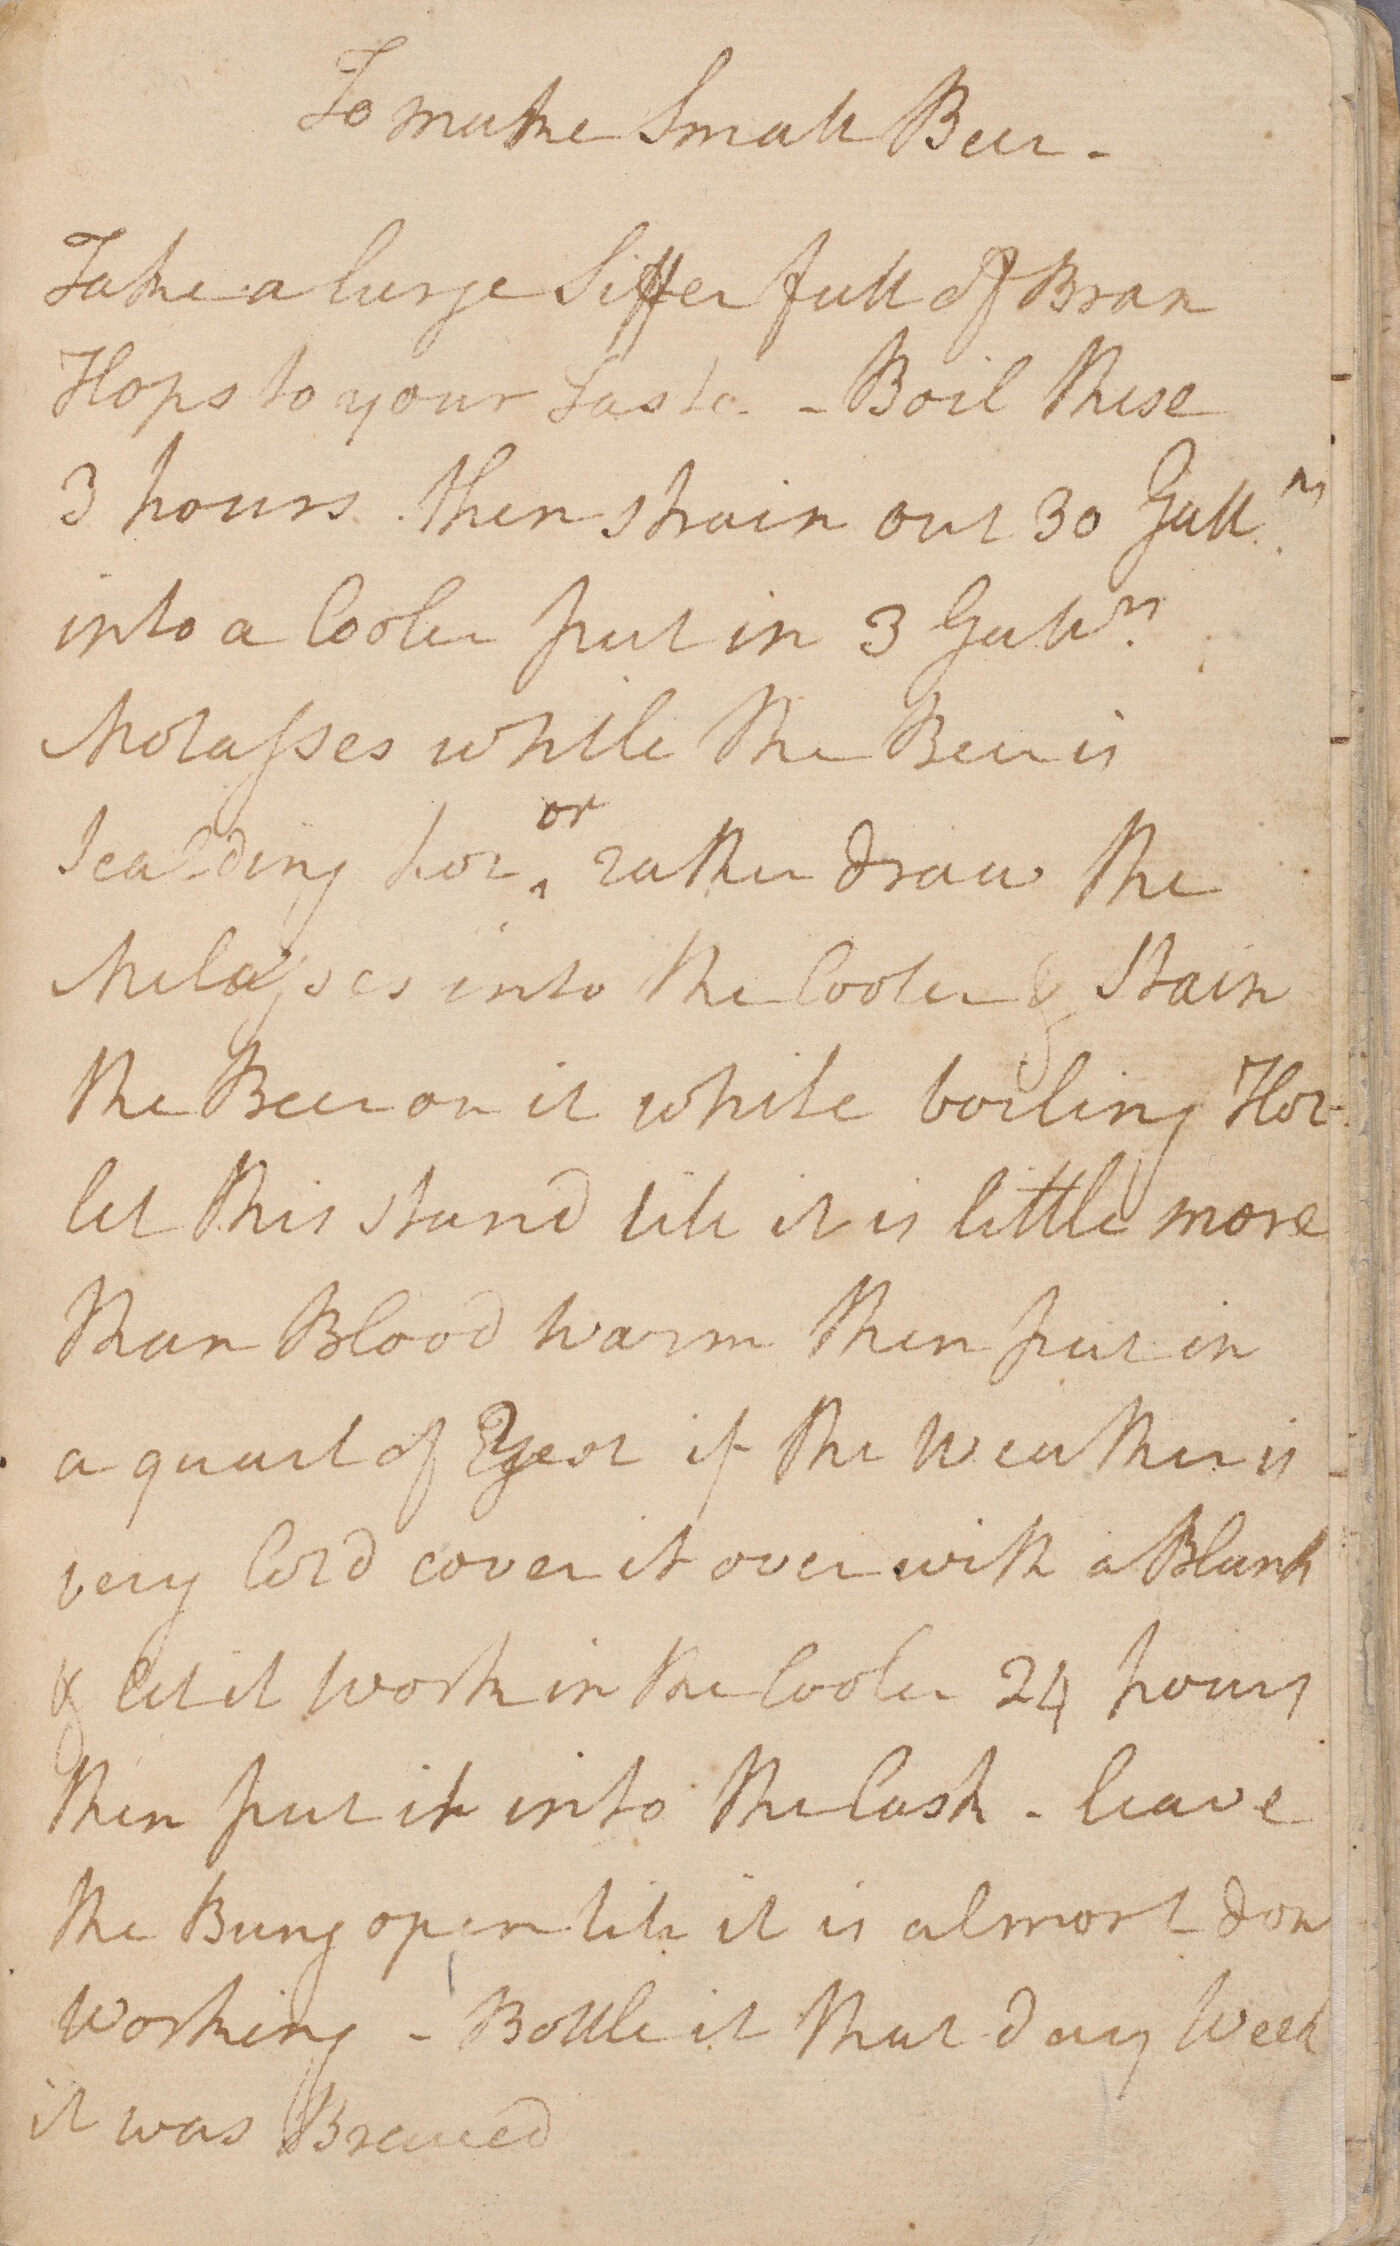 To make Small Beer -
Take a large Siffer full of Bran
Hops to your Taste - Boil these
3 hours. then strain out 30 Gall.ns
into a Cooler put in 3 Gallns
Molasses while the Beer is
Scalding hot or rather draw the
Melasses into the Cooler & Stain
the Beer on it while boiling Hot
let this stand till it is little more
than Blood warm then put in
a quart of Yest if the weather is
very Cold cover it over with a Blank
& let it work in the Cooler 24 hours
then put it into the Cask - leave
the Bung open till it is almost don
working - Bottle it that day Week
it was Brewed